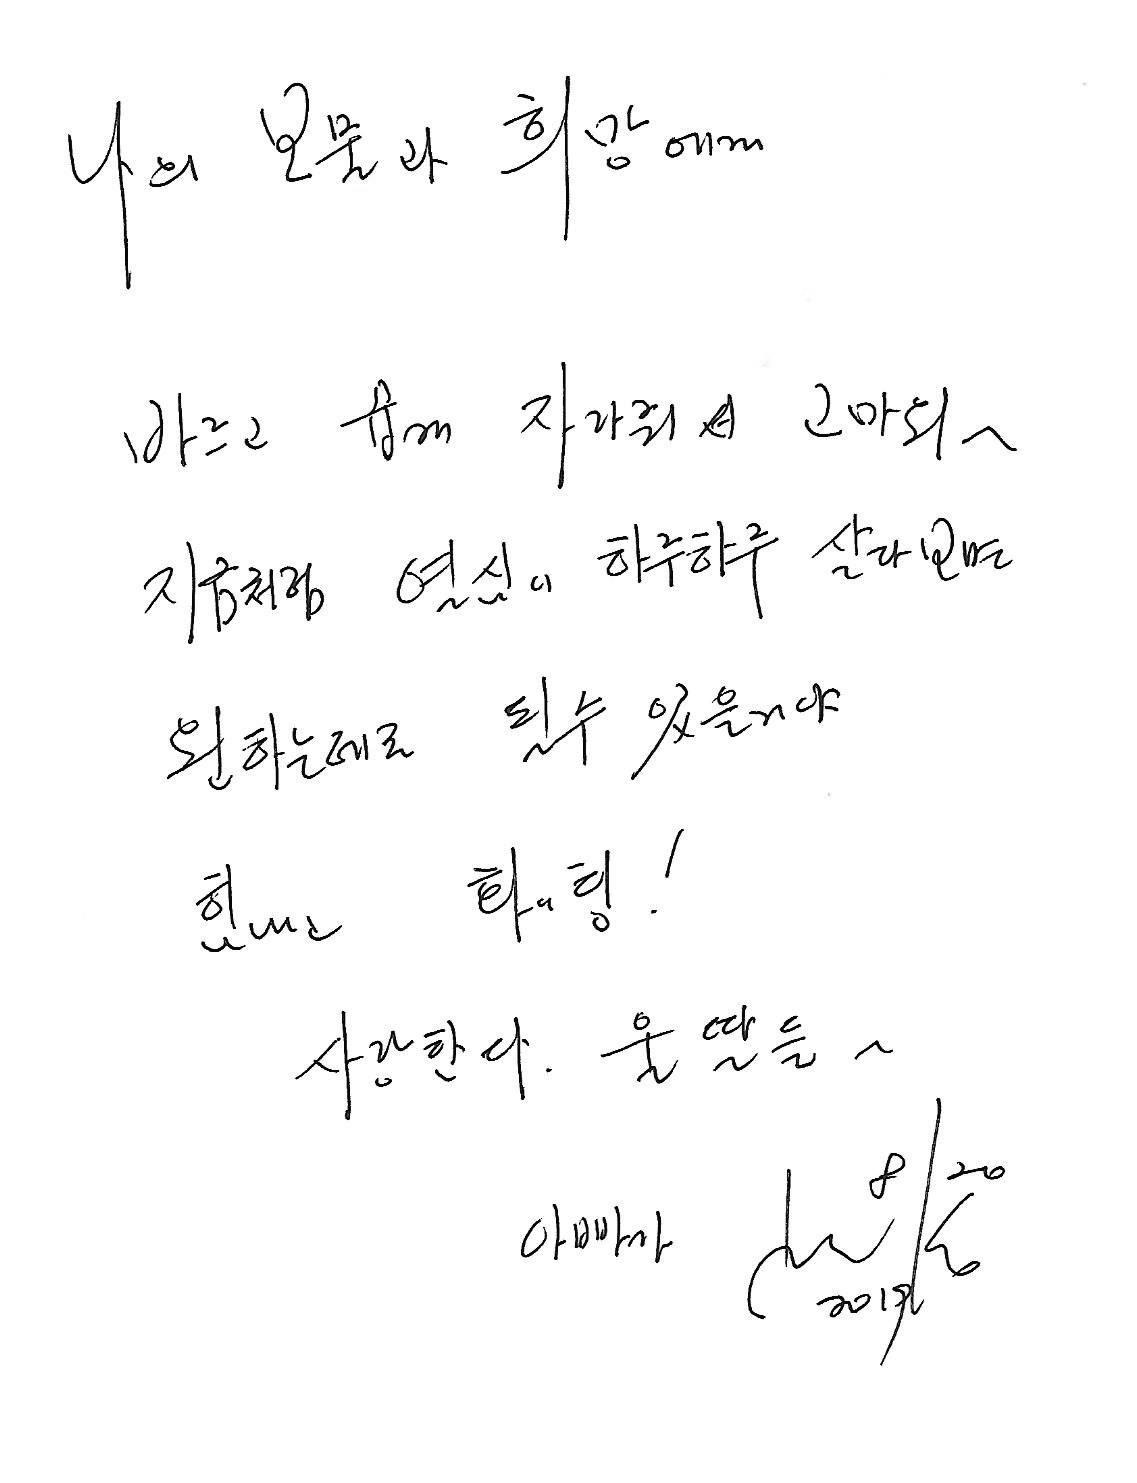 나의 보물과 희망에게
바르고 곱게 자라줘서 고마워~
지금처럼 열심히 하루하루 살다보면
원하는데로 될수 있을거야
힘내고 화이팅!
사랑한다. 울 딸들~
아빠가
8/20
2019